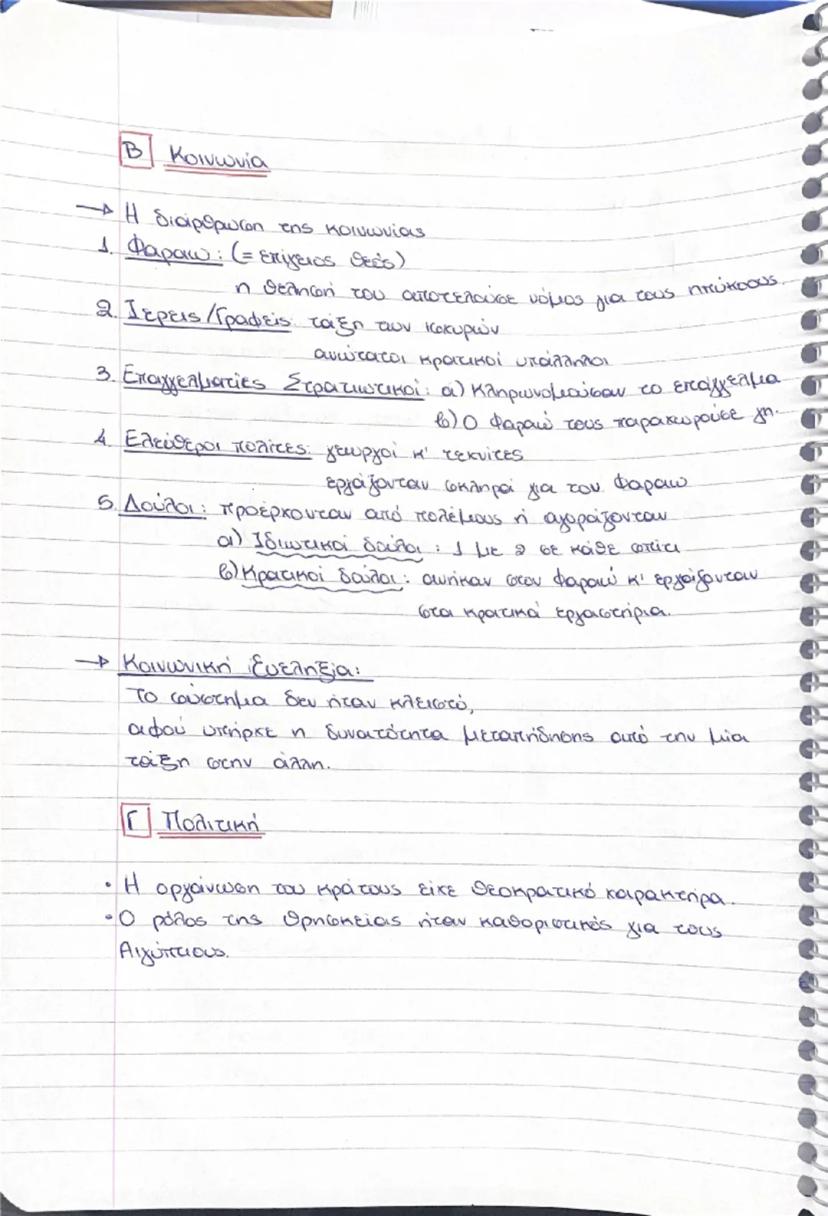 Β Κοινωνία
→ Η διάρθρωση της κοινωνίας
1. Φαραώ: (= επίγειος θεός)
η θέλησή του αποτελούσε νόμος για τους υπηκόους.
2. Ιερείς/Γραφείς: τάξη των ισχυρών
ανώτατοι κρατικοί υπάλληλοι
3. Επαγγελματίες Στρατιωτικοί: α) Κληρωνομούσαν το επάγγελμα
β) Ο Φαραώ τους παραχωρούσε γη.
4. Ελεύθεροι πολίτες: γεωργοί κ' τεχνίτες
εργάζονταν σκληρά για τον Φαραώ
5. Δούλοι: προέρχονταν από πολέμους ή αγοράζονταν
α) Ιδιωτικοί δούλοι: 1 με 2 σε κάθε σπίτι
β) Κρατικοί δούλοι: ανήκαν στον φαραώ κ' εργάζονταν
στα κρατικά εργαστήρια.
→ Κοινωνική Ευελιξία:
Το σύστημα δεν ήταν κλειστό,
αφού υπήρχε η δυνατότητα μεταπήδησης από την μία
τάξη στην άλλη.
Γ Πολιτική
• Η οργάνωση του κράτους είχε θεοκρατικό χαρακτήρα.
• Ο ρόλος της θρησκείας ήταν καθοριστικός για τους
Αιγύπτιους.